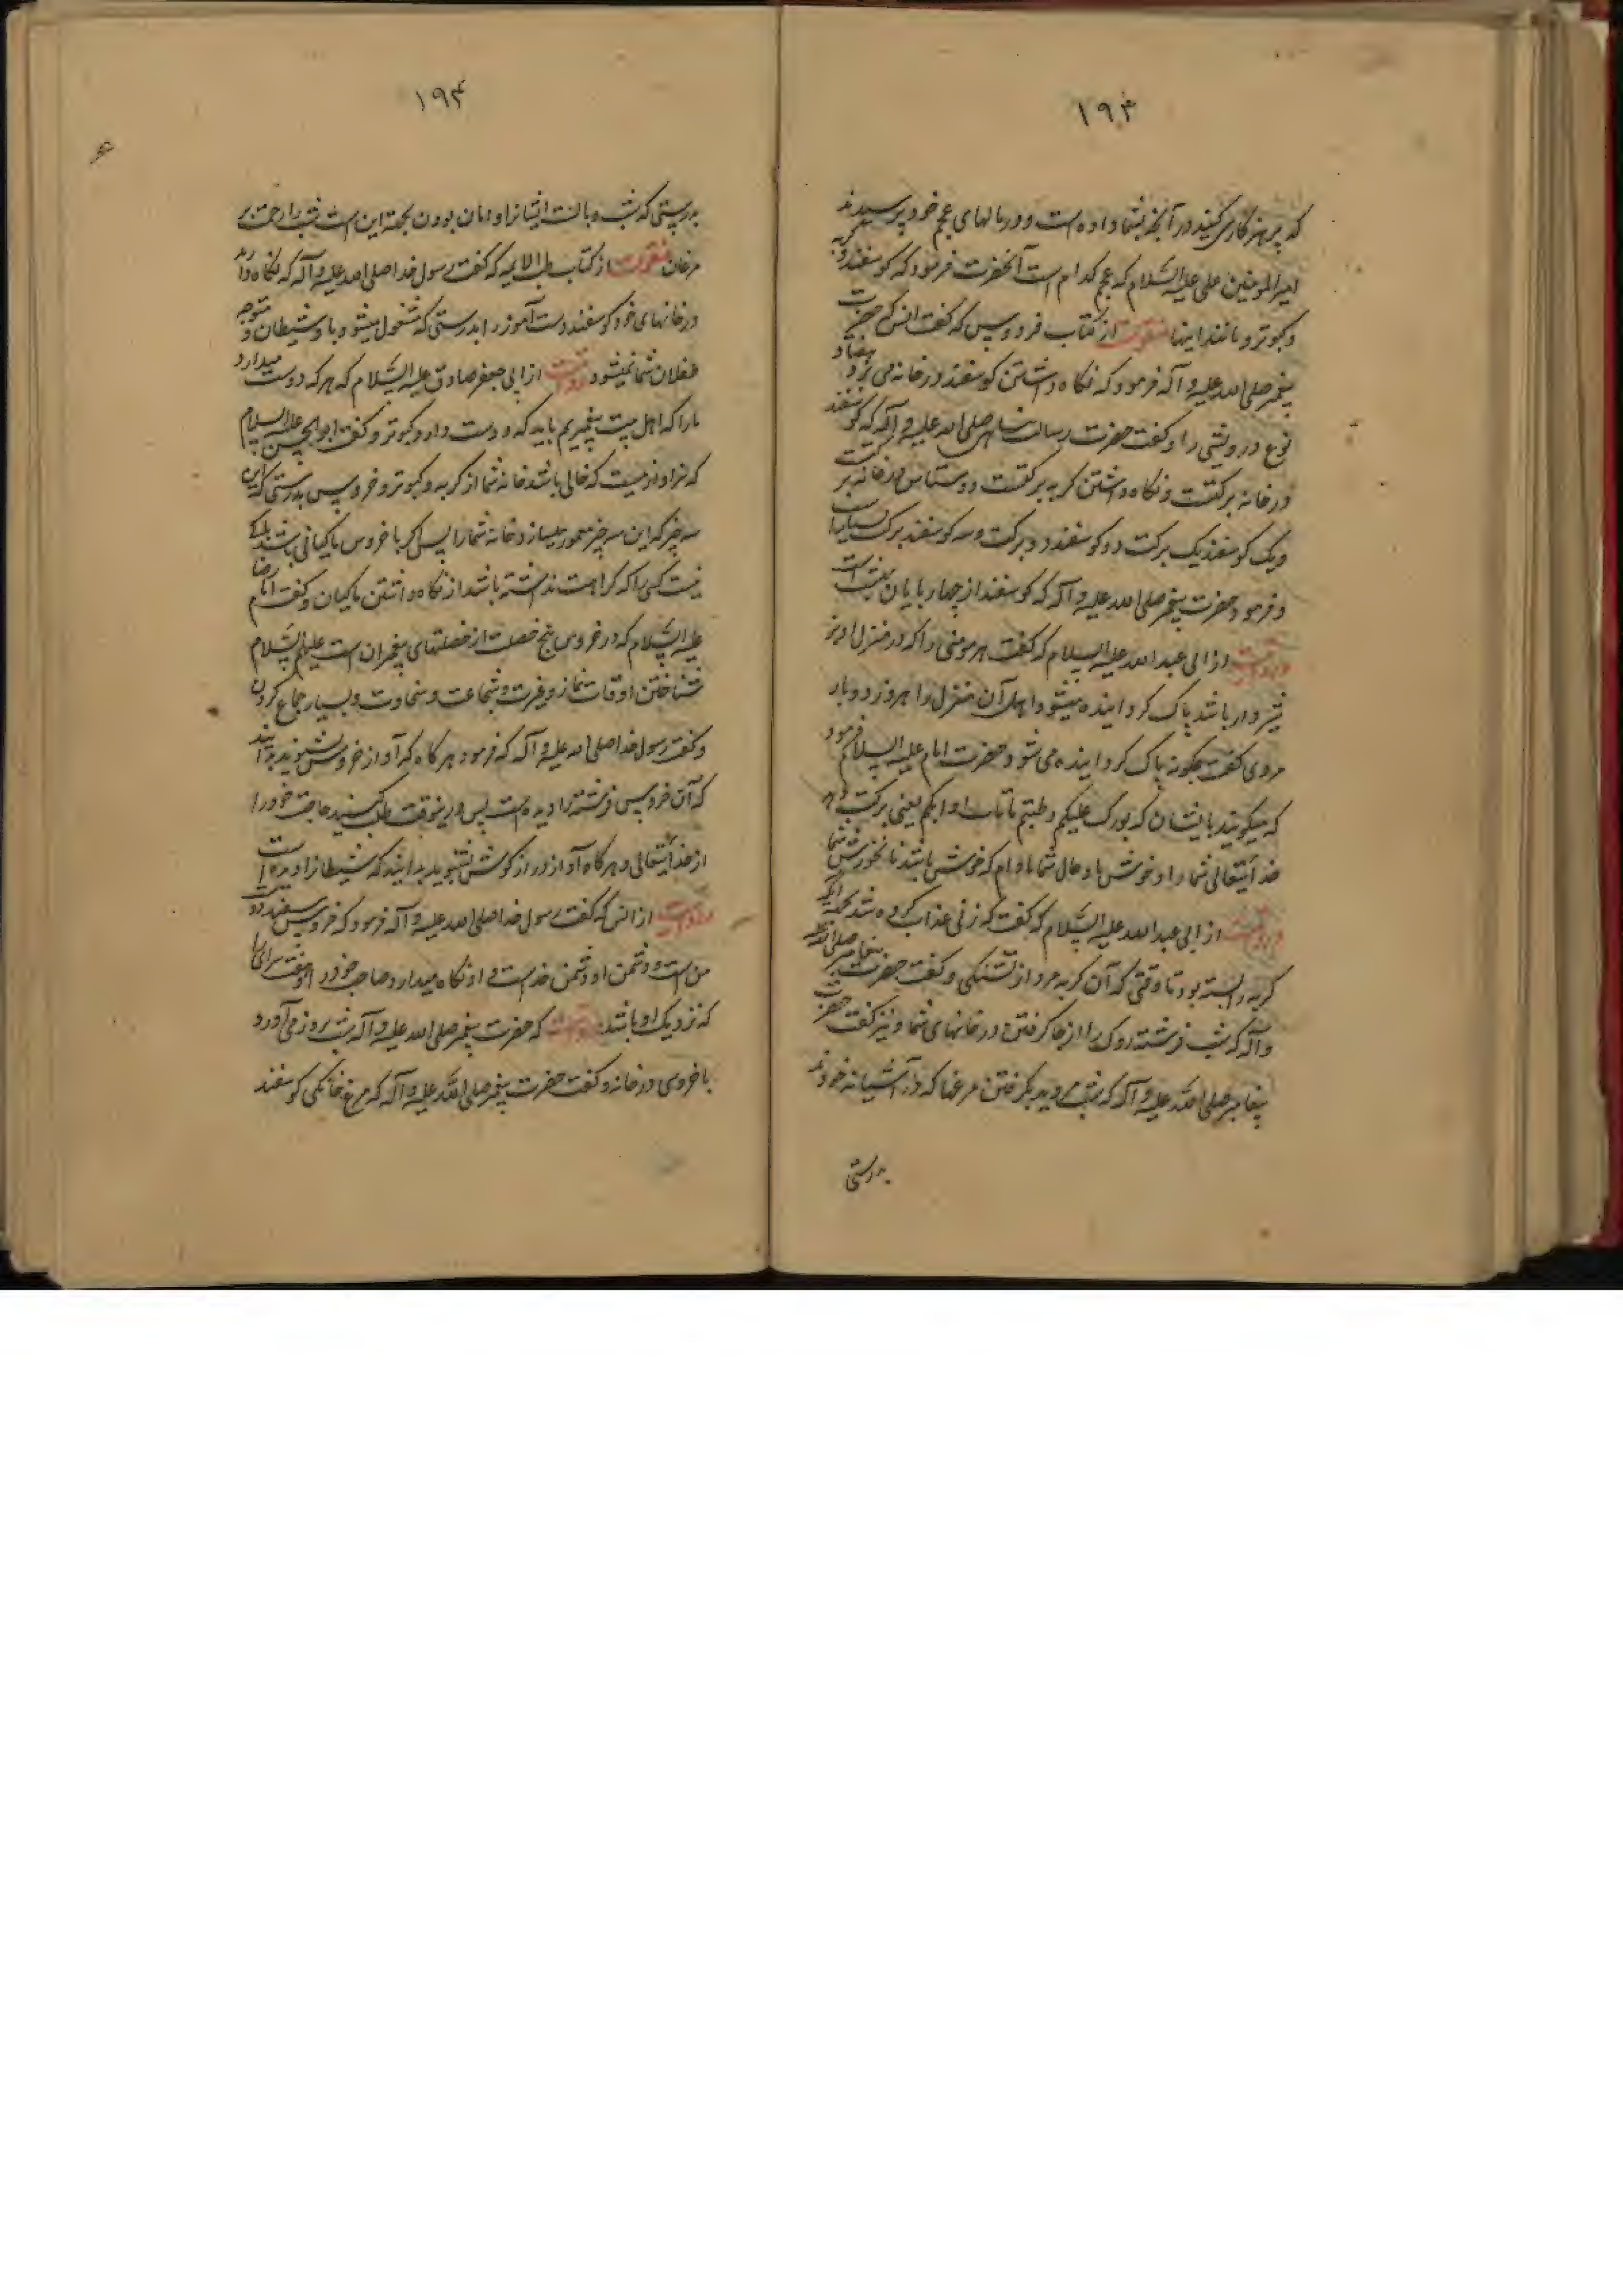 ۱۹۳
که پرهیزکاری کنید در آنچه بشما داده است و در مالهای عجم خود پرسیدند
امیر المومنین علی علیه السلام که عجم کدام است آنحضرت فرمود که گوسفند و گربه
و کبوتر و مانند اینها منقولست از کتاب فردوس که گفت انس که حضرت
پیغمبر صلی الله علیه و آله فرمود که نگاه داشتن گوسفند در خانه می برد هفتاد
نوع درویشی را و گفت حضرت رسالت پناهی صلی الله علیه و آله که گوسفند
در خانه برکتست و نگاه داشتن گربه برکتست و دستاس در خانه برکتست
و یک گوسفند یک برکت و دو گوسفند دو برکت و سه گوسفند برکت بسیار
و فرمود حضرت پیغمبر صلی الله علیه و آله که گوسفند از چهارپایان بهشت است
و روایتست از ابی عبد الله علیه السلام که گفت هر مومنی را که در منزل او بز
شیردار باشد پاک گردانیده میشود اهل آن منزل را هر روز دو بار
مردی گفت چگونه پاک گردانیده می شود حضرت امام علیه السلام فرمود
که میگویند بایشان که بورک علیکم و طبتم ما تاب ادامکم یعنی برکت دهد
خدایتعالی شما را و خوش باد حال شما مادام که خوش باشد نانخورش شما
و روایتست از ابی عبد الله علیه السلام که گفت که زنی عذاب کرده شد بجهة آنکه
گربه را بسته بود تا وقتی که آن گربه مرد از تشنگی و گفت حضرت پیغامبر صلی الله علیه
و آله که شب فرشته روک را از جا گرفتن در خانهای شما و نیز گفت حضرت
پیغامبر صلی الله علیه و آله که شب مروید بگرفتن مرغها که در آشیانه خودند
بدرستی
۱۹۴
بدرستی که شب و بالست ایشانرا و امان بودن بجهة این است شب را جهت بر
مرغان منقولست از کتاب طب الایمه که گفت رسول خدا صلی الله علیه و آله که نگاه دارید
در خانهای خود گوسفند دست آموز را بدرستی که مشغول میشود باو شیطان و متوجه
طفلان شما نمیشود روایتست از ابی جعفر صادق علیه السلام که هر که دوست میدارد
ما را که اهل بیت پیغمبریم باید که دوست دارد کبوتر و گفت ابو الحسن علیه السلام
که سزاوار نیست که خالی باشد خانه شما از گربه و کبوتر و خروس بدرستی که این
سه چیز که این سه چیز معمور میسازد خانه شما را پس اگر با خروس ماکیانی باشد باک
نیست کسی را که کراهت نداشته باشد از نگاه داشتن ماکیان و گفت امام رضا
علیه السلام که در خروس پنج خصلت از خصلتهای پیغمبران است علیهم السلام
شناختن اوقات نماز و غیرت و شجاعت و سخاوت و بسیار جماع کردن
و گفت رسول خدا صلی الله علیه و آله که فرمود هرگاه که آواز خروس بشنوید بدانید
که آن خروس فرشته را دیده است پس در ینوقت طلب کنید حاجت خود را
از خدایتعالی و هرگاه آواز دراز گوش بشنوید بدانید که شیطانرا دیده است
روایتست از انس که گفت رسول خدا صلی الله علیه و آله فرمود که خروس سفید دوست
من است و دشمن او دشمن خداست و او نگاه میدارد صاحب خود را و هفت سرای را
که نزدیک او باشد روایتست که حضرت پیغمبر صلی الله علیه و آله شب بروز می آورد
با خروسی در خانه و گفت حضرت پیغمبر صلی الله علیه و آله که مرغ خانگی گوسفند